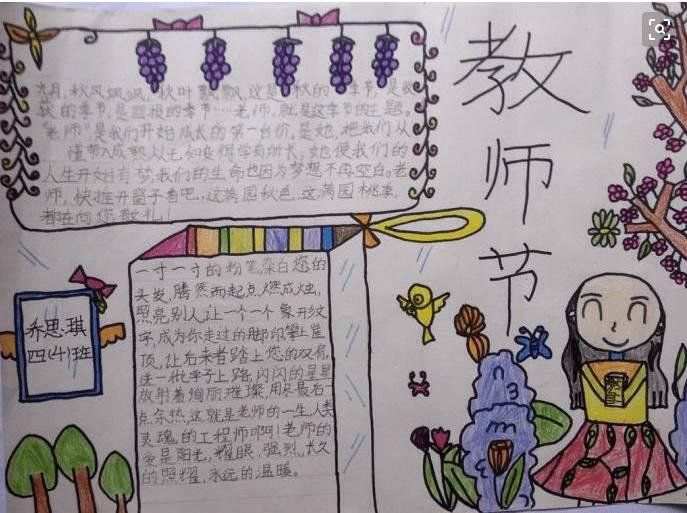 教师节
九月,秋风飒飒,秋叶飘飘,这是秋的季节,是收
获的季节,是回报的季节……老师,就是这季节的主题。
"老师"是我们开始成长的第一台阶,是她,把我们从
懂带入成熟从无知变得学有所长;她使我们的
人生开始有梦我们的生命也因为梦想不再空白。老
师,快推开窗子看吧,这满园秋色,这满园桃李,
都在向您敬礼!
乔思琪
四(4)班
一寸一寸的粉笔,染白您的
头发,腾然而起点燃成烛,
照亮别人让一个一个象形文
字,成为你走过的脚印攀上崖
顶,让后来者踏上您的双肩,
送一批学子上路,闪闪的星星
放射着绚丽璀璨,用尽最后一
点余热,这就是老师的一生,人类
灵魂的工程师啊!老师的
爱是阳光,耀眼、强烈、长久
的照耀,永远的温暖。